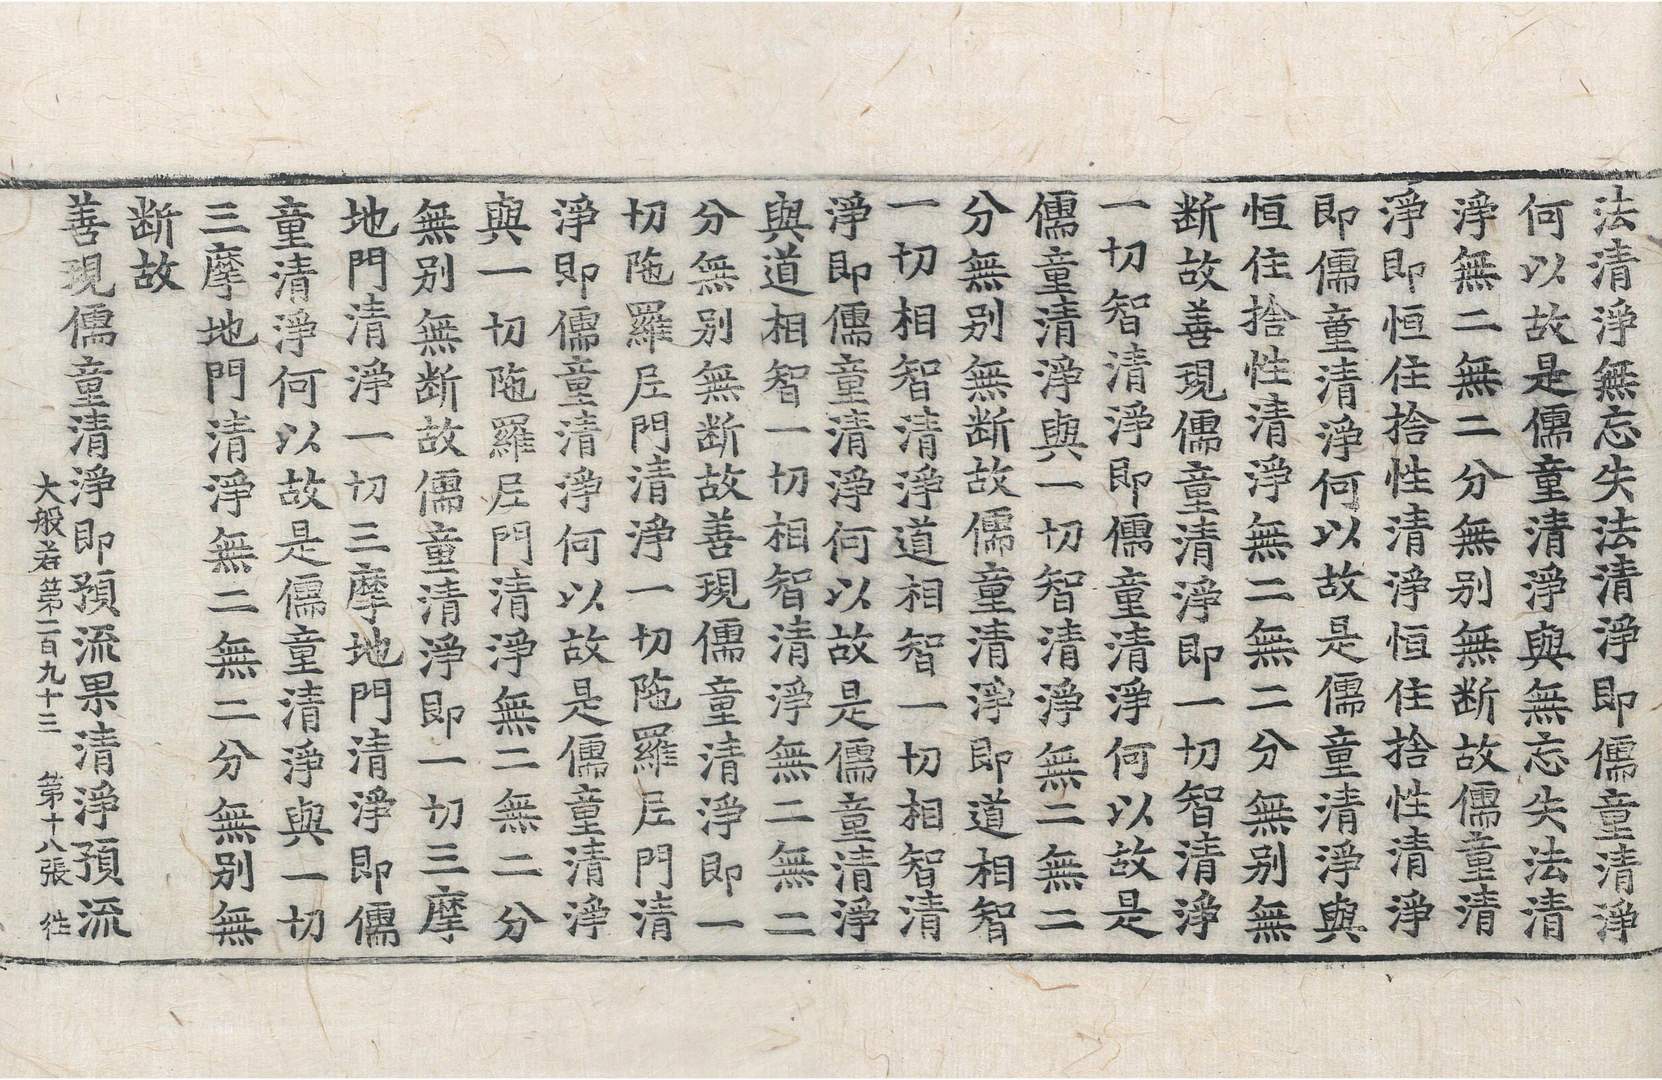 法清淨無忘失法清淨即儒童清淨
何以故是儒童清淨與無忘失法清
淨無二無二分無别無断故儒童清
淨即恒住捨性清淨恒住捨性清淨
即儒童清淨何以故是儒童清淨與
恒住捨性清淨無二無二分無别無
断故善現儒童清淨即一切智清淨
一切智清淨即儒童清淨何以故是
儒童清淨與一切智清淨無二無二
分無别無断故儒童清淨即道相智
一切相智清淨道相智一切相智清
淨即儒童清淨何以故是儒童清淨
與道相智一切相智清淨無二無二
分無别無断故善現儒童清淨即一
切陁羅尼門清淨一切陁羅尼門清
淨即儒童清淨何以故是儒童清淨
與一切陁羅尼門清淨無二無二分
無别無断故儒童清淨即一切三摩
地門清淨一切三摩地門清淨即儒
童清淨何以故是儒童清淨與一切
三摩地門清淨無二無二分無别無
断故
善現儒童清淨即預流果清淨預流
大般若第一百九十三 第十八張 徃